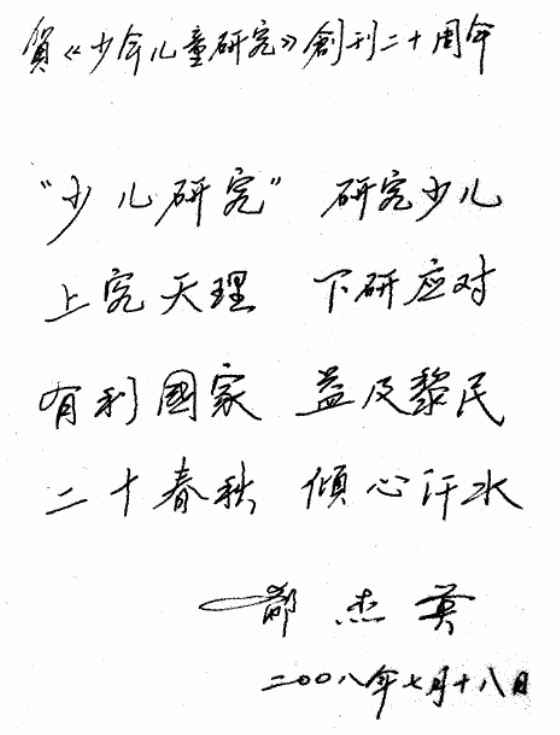 賀《少年儿童研究》創刊二十周年
“少儿研究” 研究少儿
上究天理 下研应对
有利國家 益及黎民
二十春秋 傾心汗水
郗杰英
二〇〇八年七月十八日